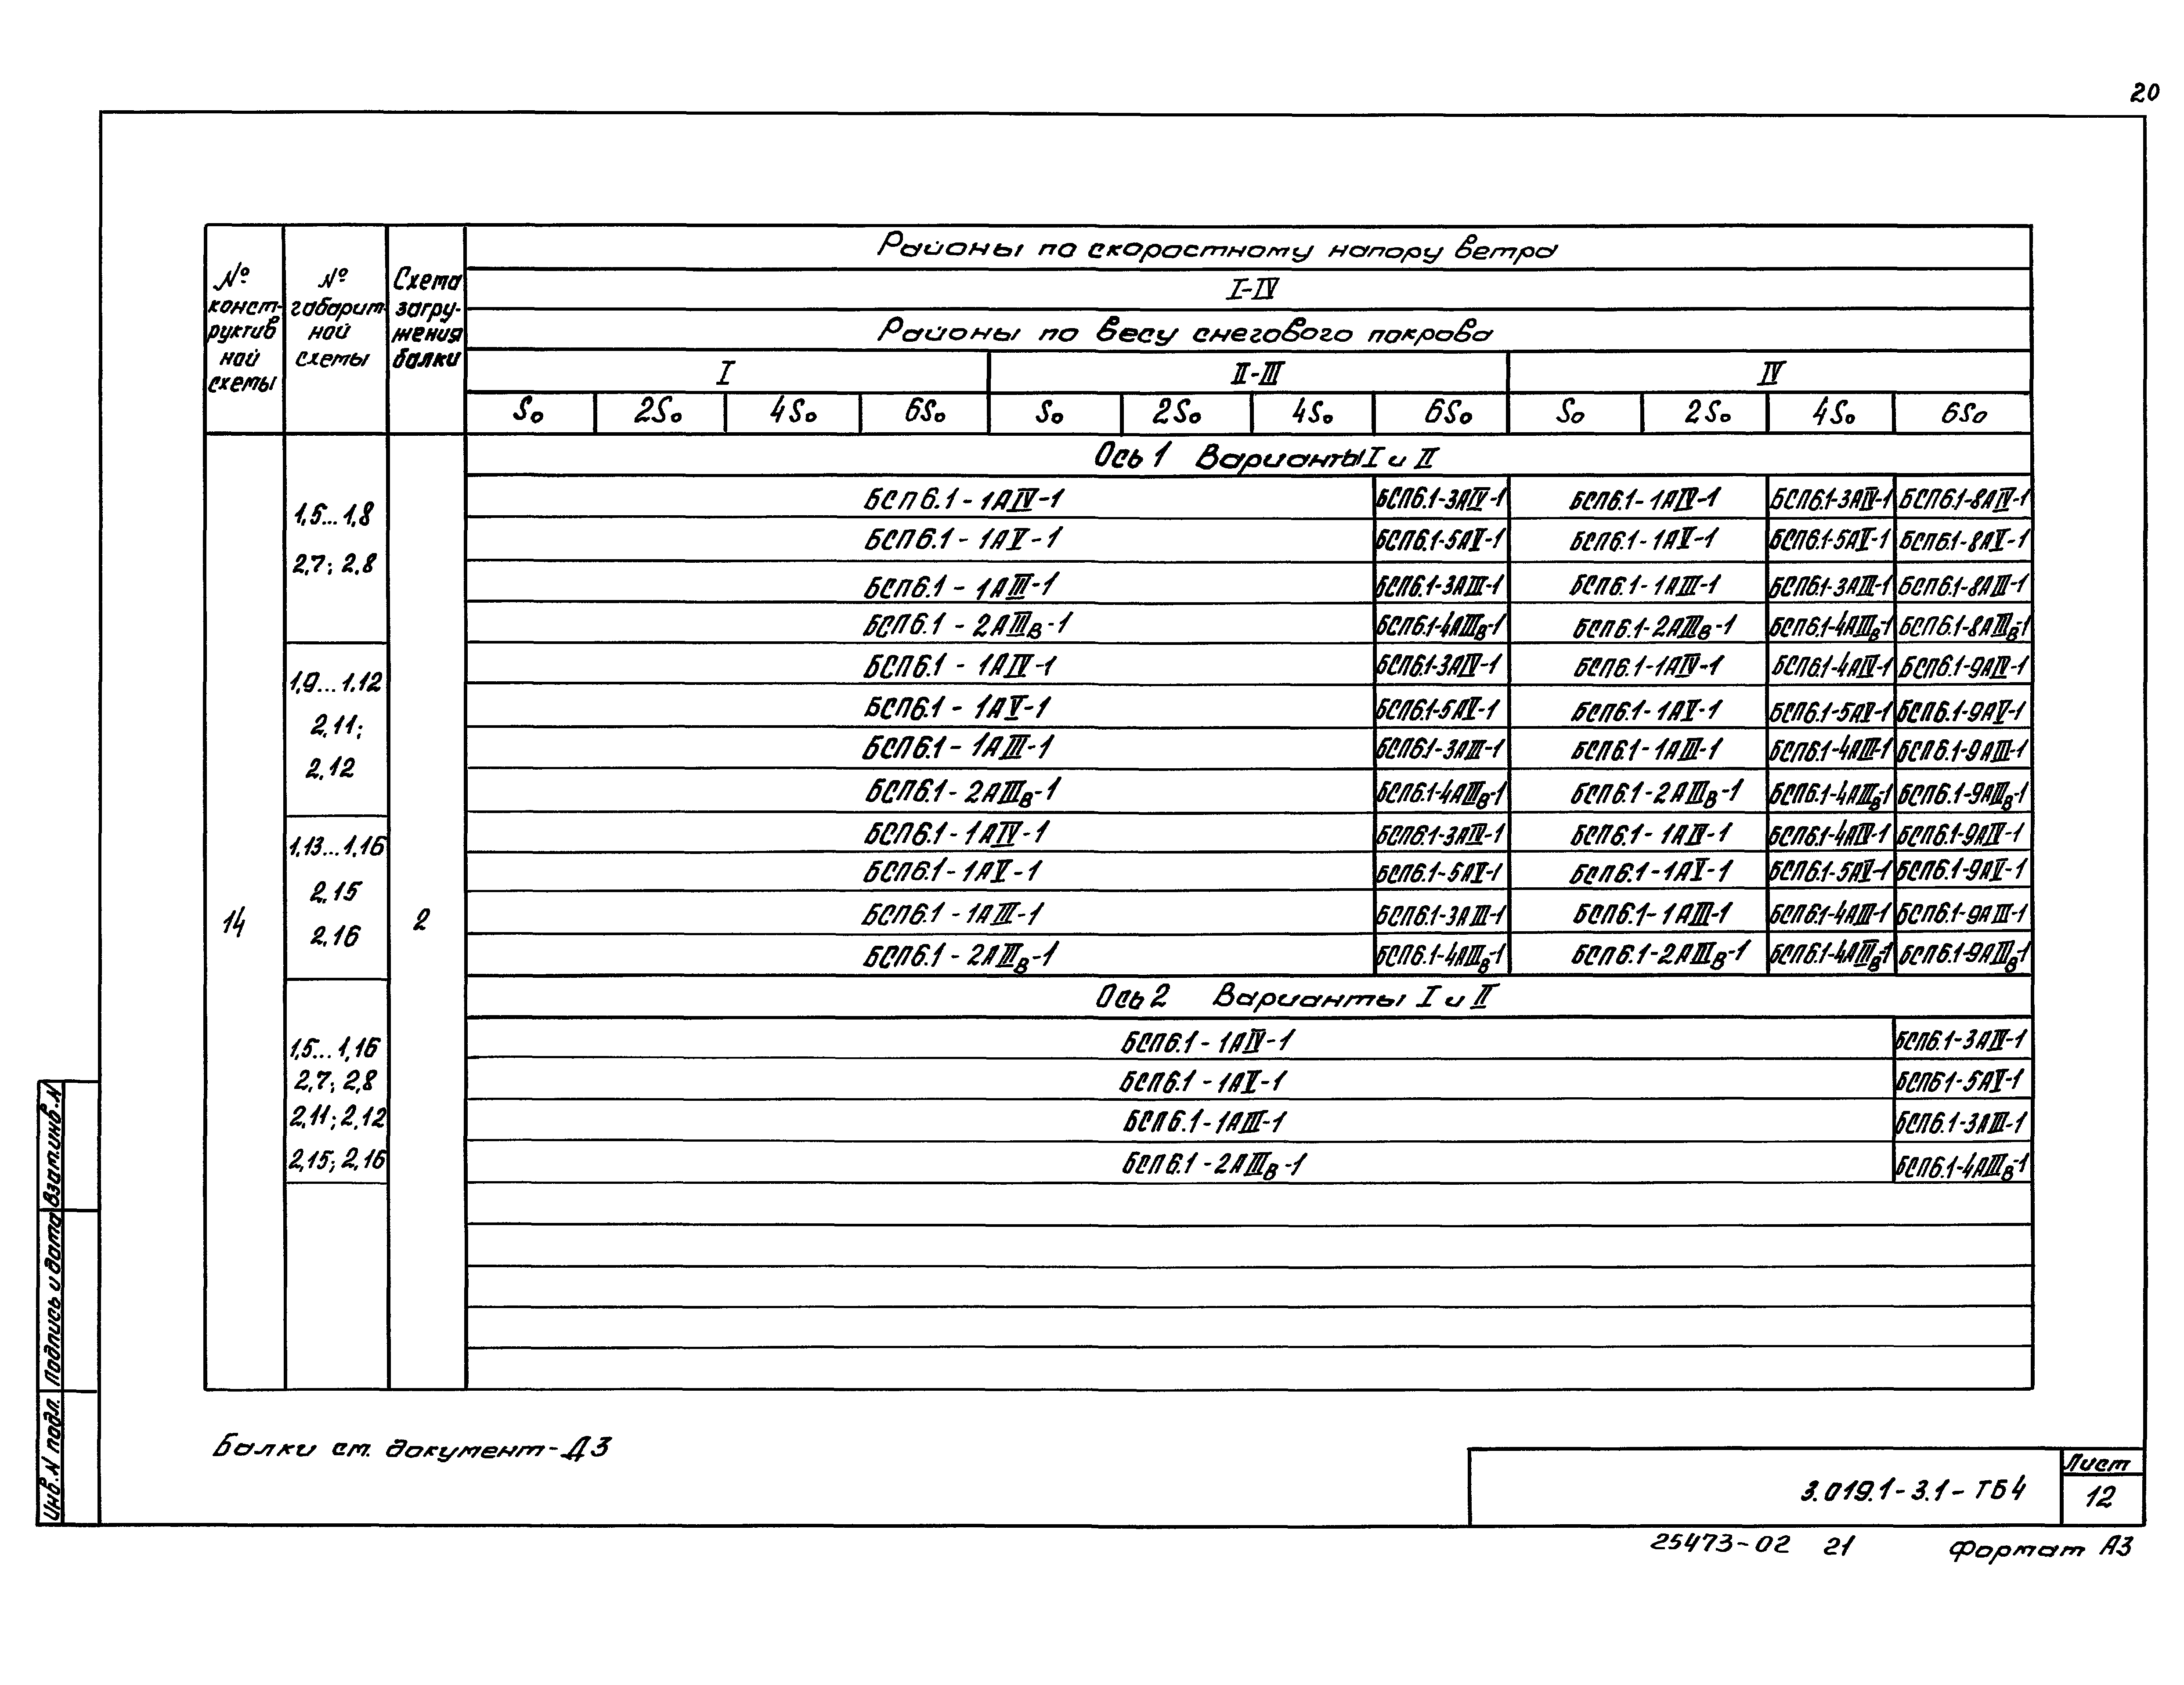 20
№ конст- руктив ной схемы
№ габарит- ной схемы
Схема загру- жения балки
Районы по скоростному напору ветра
I-IV
Районы по весу снегового покрова
I II-III IV
So 2So 4So 6So So 2So 4So 6So So 2So 4So 6So
Ось 1 Варианты I и II
14
2
1,5...1,8
2,7; 2,8
БСП6.1-1АIV-1 БСП6.1-3АIV-1 БСП6.1-1АIV-1 БСП6.1-3АIV-1 БСП6.1-8АIV-1
БСП6.1-1АV-1 БСП6.1-5АV-1 БСП6.1-1АV-1 БСП6.1-5АV-1 БСП6.1-8АV-1
БСП6.1-1АIII-1 БСП6.1-3АIII-1 БСП6.1-1АIII-1 БСП6.1-3АIII-1 БСП6.1-8АIII-1
БСП6.1-2АIIIв-1 БСП6.1-4АIIIв-1 БСП6.1-2АIIIв-1 БСП6.1-4АIIIв-1 БСП6.1-8АIIIв-1
1,9...1.12
2,11;
2,12
БСП6.1-1АIV-1 БСП6.1-3АIV-1 БСП6.1-1АIV-1 БСП6.1-4АIV-1 БСП6.1-9АIV-1
БСП6.1-1АV-1 БСП6.1-5АV-1 БСП6.1-1АV-1 БСП6.1-5АV-1 БСП6.1-9АV-1
БСП6.1-1АIII-1 БСП6.1-3АIII-1 БСП6.1-1АIII-1 БСП6.1-4АIII-1 БСП6.1-9АIII-1
БСП6.1-2АIIIв-1 БСП6.1-4АIIIв-1 БСП6.1-2АIIIв-1 БСП6.1-4АIIIв-1 БСП6.1-9АIIIв-1
1,13...1,16
2,15
2,16
БСП6.1-1АIV-1 БСП6.1-3АIV-1 БСП6.1-1АIV-1 БСП6.1-4АIV-1 БСП6.1-9АIV-1
БСП6.1-1АV-1 БСП6.1-5АV-1 БСП6.1-1АV-1 БСП6.1-5АV-1 БСП6.1-9АV-1
БСП6.1-1АIII-1 БСП6.1-3АIII-1 БСП6.1-1АIII-1 БСП6.1-4АIII-1 БСП6.1-9АIII-1
БСП6.1-2АIIIв-1 БСП6.1-4АIIIв-1 БСП6.1-2АIIIв-1 БСП6.1-4АIIIв-1 БСП6.1-9АIIIв-1
Ось 2 Варианты I и II
1,5...1,16 БСП6.1-1АIV-1 БСП6.1-3АIV-1
2,7; 2,8 БСП6.1-1АV-1 БСП6.1-5АV-1
2,11; 2,12 БСП6.1-1АIII-1 БСП6.1-3АIII-1
2,15; 2,16 БСП6.1-2АIIIв-1 БСП6.1-4АIIIв-1
Балки см. документ-Д3
3.019.1-3.1-ТБ4
Лист
12
25473-02 21 Формат А3
Инв. N подл. Подпись и дата Взам.инв.N